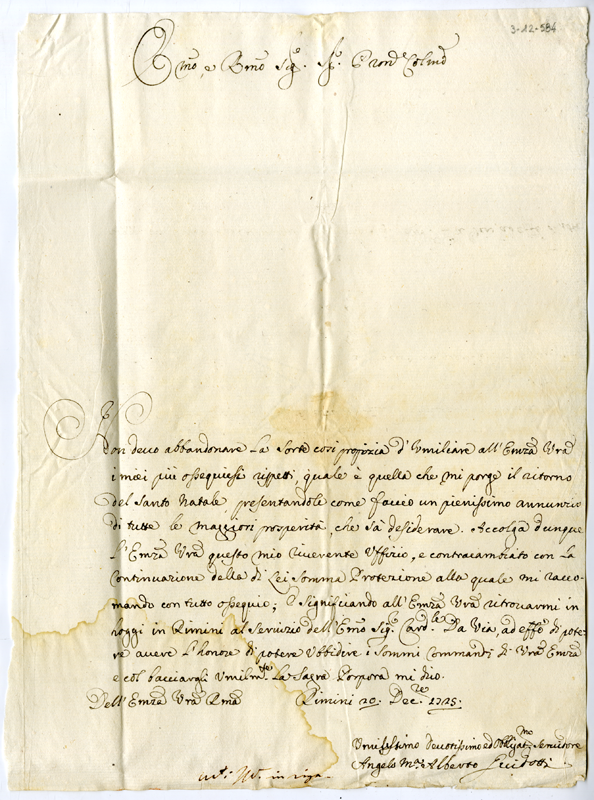 3-12-584
Emõ, e Rmõ Sig.r Sig.r P ron Colmõ
Non devo abbandonare la Sorte così propizia d'Umiliare all'Emza Vra
i miei più ossequiosi rispetti, quale è quella che mi porge il ritorno
del Santo Natale presentandole come faccio un pienissimo annunzio
di tutte le maggiori prosperità, che sà desiderare. Accolga dunque
l'Emza Vra questo mio riverente Uffizio, e contracambiato con la
Continuazione della di Lei Somma Protezione alla quale mi racco-
mando con tutto ossequio; e significando all'Emza Vra ritrovarmi in
hoggi in Rimini al Servizio dell'Emo Sig.r Card.le Da Via, ad effo di pote-
re avere l'honore di potere Ubbidire i Sommi Commandi di Vra Emza
e col bacciargli Umilmte la Sagra Porpora mi dico.
Dell'Emza Vra Rma Rimini 20. Decre 1725.
Umilissimo Devotissimo ed Obbligatmo Servitore
Angelo Ma Alberto Guidotti